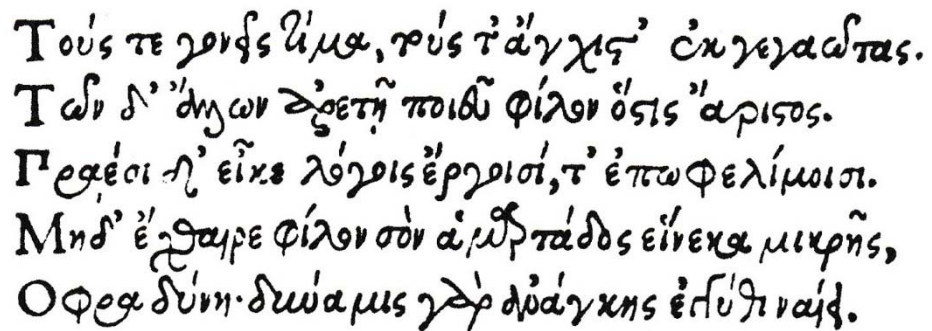 Τούς τε γονεῖς τίμα, τούς τ' ἄγχιστ' ἐκγεγαῶτας.
Τῶν δ' ἄλλων ἀρετῆ ποιοῦ φίλον ὅστις ἄριστος.
Πραέσι δ' εἶκε λόγοις ἔργοισί, τ' ἐπωφελίμοισι.
Μηδ' ἔχθαιρε φίλον σὸν ἁμαρτάδος εἵνεκα μικρῆς,
Οφρα δύνη· δύναμις γὰρ ἀνάγκης ἐγγύθι ναίει.